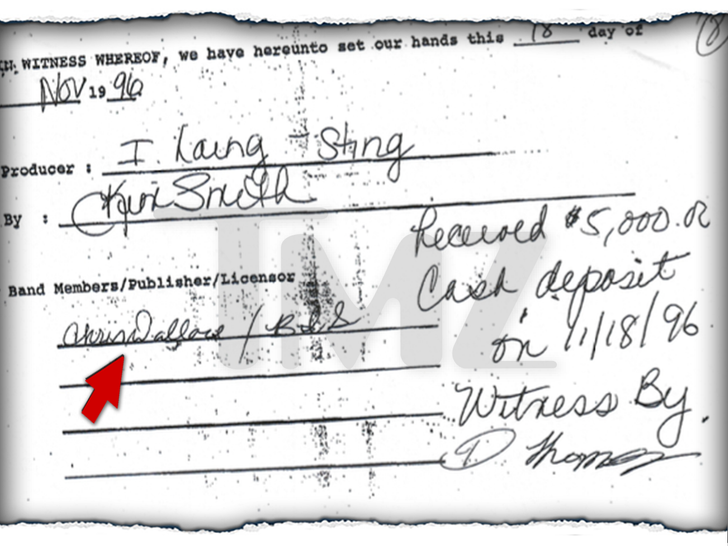 IN WITNESS WHEREOF, we have hereunto set our hands this 18 day of
Nov 1996
Producer : I. Laing - Sting
By : Smith
Band Members/Publisher/Licensor
Chris Wallace /
Received $5,000.00
Cash deposit
on 11/18/96
Witness By.
D Thomas
TMZ